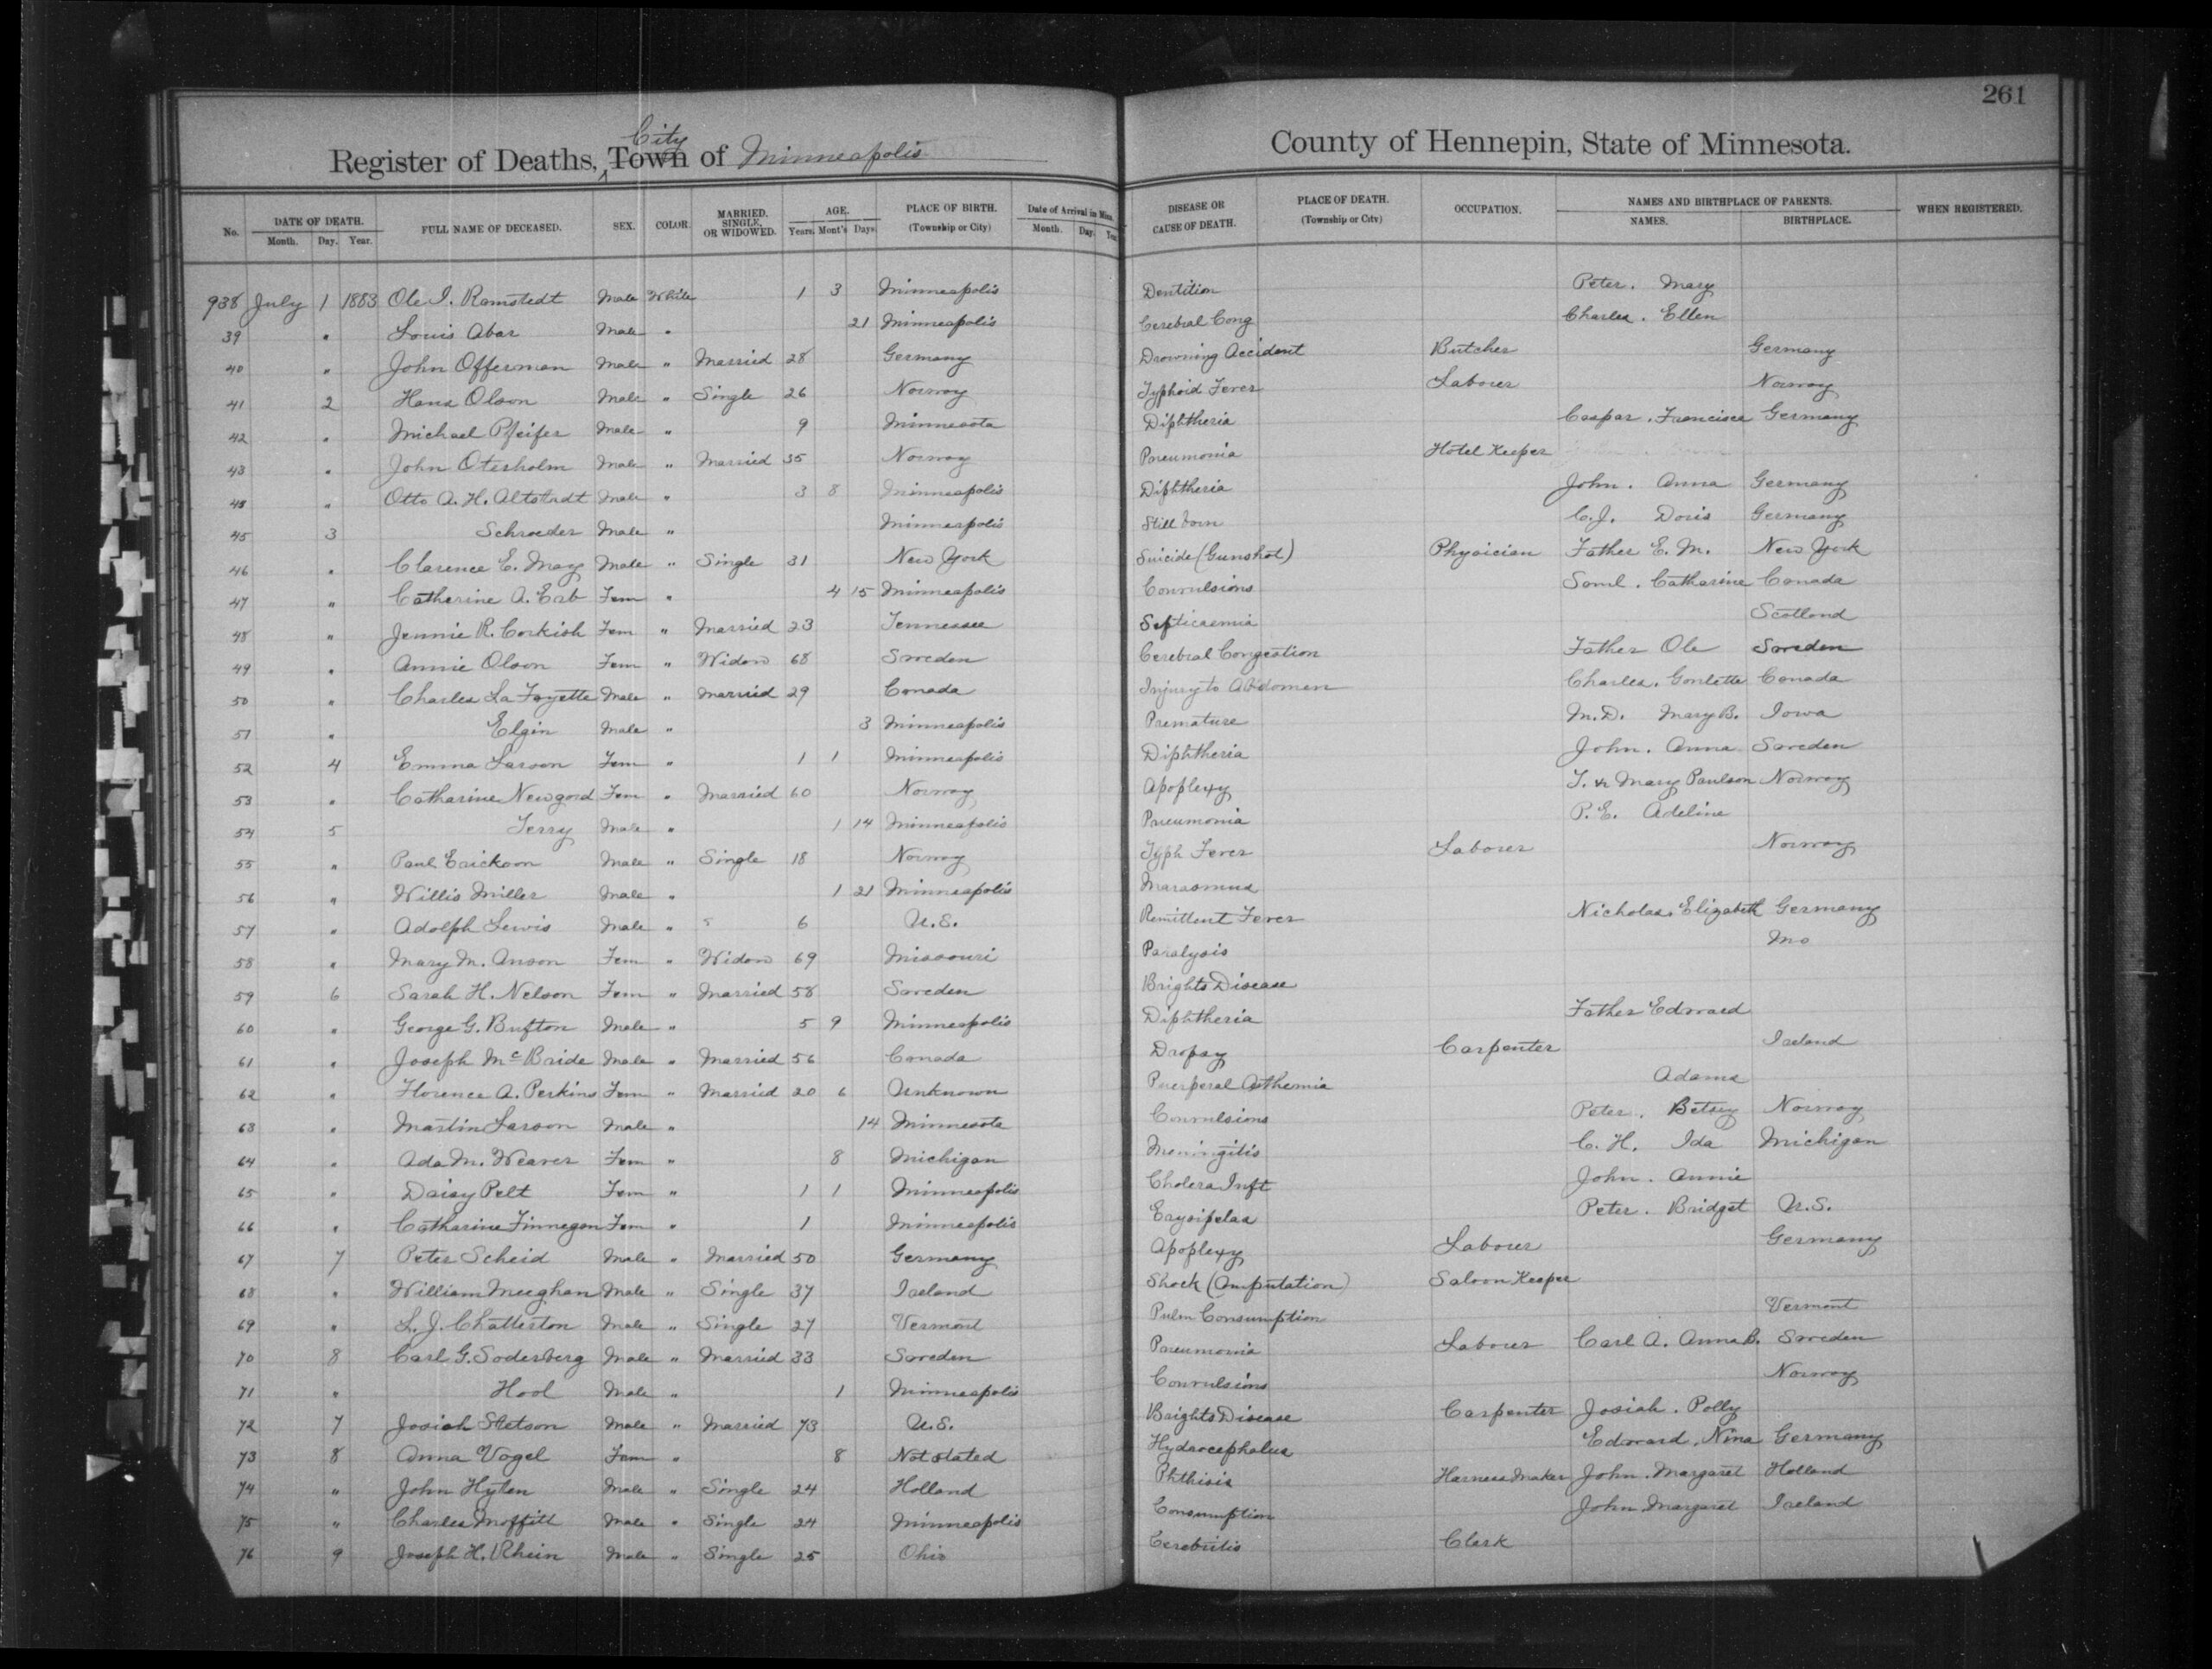 261
City
Register of Deaths, Town of Minneapolis County of Hennepin, State of Minnesota.
No. DATE OF DEATH. FULL NAME OF DECEASED. SEX. COLOR. MARRIED, SINGLE, OR WIDOWED. AGE. PLACE OF BIRTH. (Township or City) Date of Arrival in Minn. DISEASE OR CAUSE OF DEATH. PLACE OF DEATH. (Township or City) OCCUPATION. NAMES AND BIRTHPLACE OF PARENTS. WHEN REGISTERED.
Month. Day. Year. Years. Mont's Days. Month. Day. Year NAMES. BIRTHPLACE.
938 July 1 1883 Ole I. Ramstedt Male White 1 3 Minneapolis Dentition Peter. Mary
39 " Louis Abar Male " 21 Minneapolis Cerebral Cong Charles. Ellen
40 " John Offerman Male " Married 28 Germany Drowning Accident Butcher Germany
41 2 Hans Olson Male " Single 26 Norway Typhoid Fever Laborer Norway
42 " Michael Pfeifer Male " 9 Minnesota Diphtheria Caspar. Francisca Germany
43 " John Otesholm Male " Married 35 Norway Pneumonia Hotel Keeper
" Otto A. H. Altstadt Male " 3 8 Minneapolis Diphtheria John. Anna Germany
45 3 Schroeder Male " Minneapolis Still born C. J. Doris Germany
46 " Clarence E. May Male " Single 31 New York Suicide (Gunshot) Physician Father E. M. New York
47 " Catherine A. Erb Fem " 4 15 Minneapolis Convulsions Saml. Catharine Canada
48 " Jennie R. Corkish Fem " Married 23 Tennessee Septicaemia Scotland
49 " Annie Olson Fem " Widow 68 Sweden Cerebral Congestion Father Ole Sweden
50 " Charles La Fayette Male " Married 29 Canada Injury to Abdomen Charles. Canada
51 " Elgin Male " 3 Minneapolis Premature M. D. Mary B. Iowa
52 4 Emma Larson Fem " 1 1 Minneapolis Diphtheria John. Anna Sweden
53 " Catharine Newgord Fem " Married 60 Norway Apoplexy T. & Mary Paulson Norway
54 5 Terry Male " 1 14 Minneapolis Pneumonia P. E. Adeline
55 " Paul Erickson Male " Single 18 Norway Typh Fever Laborer Norway
56 " Willis Miller Male " 1 21 Minneapolis Marasmus
57 " Adolph Lewis Male " 6 U.S. Remittent Fever Nicholas. Elizabeth Germany
58 " Mary M. Anson Fem " Widow 69 Missouri Paralysis Mo
59 6 Sarah H. Nelson Fem " Married 58 Sweden Brights Disease
60 " George G. Bufton Male " 5 9 Minneapolis Diphtheria Father Edward
61 " Joseph McBride Male " Married 56 Canada Dropsy Carpenter Ireland
62 " Florence A. Perkins Fem " Married 20 6 Unknown Puerperal Asthemia Adams
63 " Martin Larson Male " 14 Minnesota Convulsions Peter. Betsey Norway
64 " Ada M. Weaver Fem " 8 Michigan Meningitis C. H. Ida Michigan
65 " Daisy Pelt Fem " 1 1 Minneapolis Cholera Inft John. Annie
66 " Catharine Finnegan Fem " 1 Minneapolis Erysipelas Peter. Bridget U.S.
67 7 Peter Scheid Male " Married 50 Germany Apoplexy Laborer Germany
68 " William Meeghan Male " Single 37 Ireland Shock (Amputation) Saloon Keeper
69 " L. J. Chatterton Male " Single 27 Vermont Pulm Consumption Vermont
70 8 Carl G. Soderberg Male " Married 33 Sweden Pneumonia Laborer Carl A. Anna B. Sweden
71 " Hool Male " 1 Minneapolis Convulsions Norway
72 7 Josiah Stetson Male " Married 73 U.S. Brights Disease Carpenter Josiah. Polly
73 8 Anna Vogel Fem " 8 Not stated Hydrocephalus Edward. Nina Germany
74 " John Hyten Male " Single 24 Holland Phthisis Harness Maker John. Margaret Holland
75 " Charles Moffitt Male " Single 24 Minneapolis Consumption John Margaret Ireland
76 9 Joseph H. Rhein Male " Single 25 Ohio Cerebritis Clerk